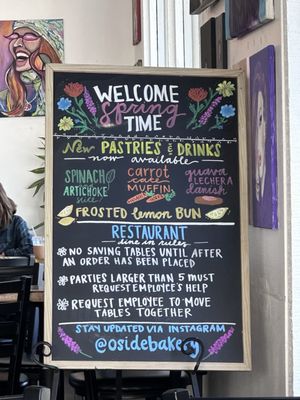 WELCOME
Spring
TIME
New PASTRIES & DRINKS
now available
SPINACH
ARTICHOKE
carrot
cake
MUFFIN
guava
LECHERA
danish
FROSTED lemon BUN
RESTAURANT
line in rules
NO SAVING TABLES UNTIL AFTER
AN ORDER HAS BEEN PLACED
PARTIES LARGER THAN 5 MUST
REQUEST EMPLOYEE'S HELP
REQUEST EMPLOYEE TO MOVE
TABLES TOGETHER
STAY UPDATED VIA INSTAGRAM
@osidebakery